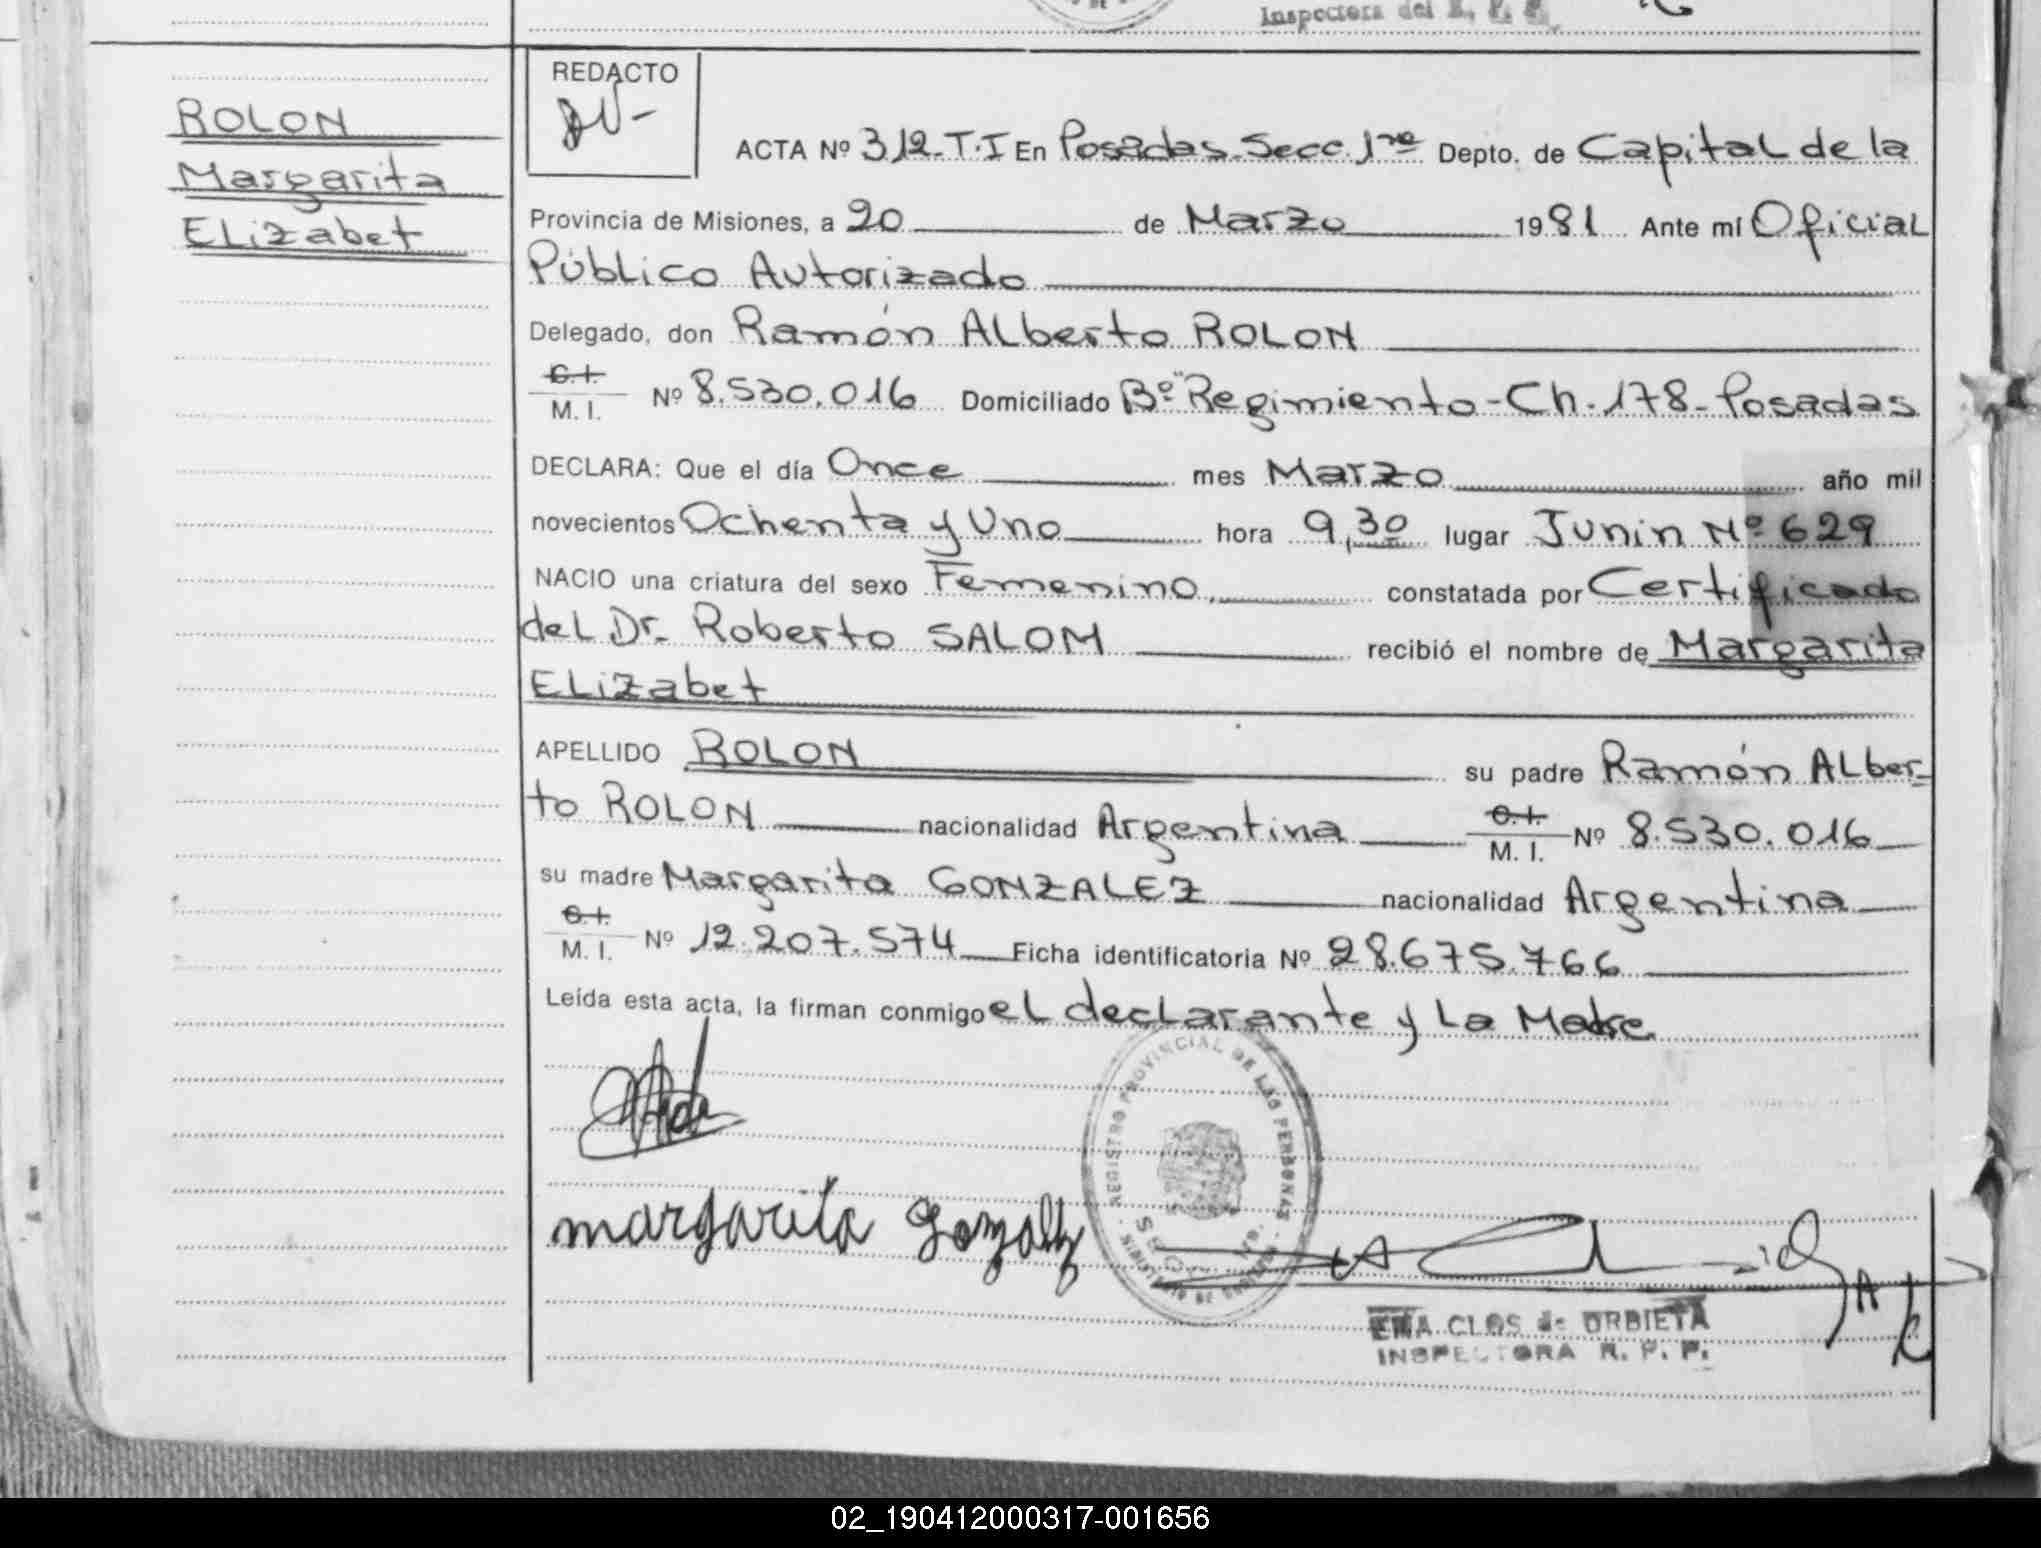 Inspectora del R. P. P.
ROLON
Margarita
ELizabet
REDACTO
ACTA Nº 312-T.I En Posadas-Secc. 1ra Depto. de CapitaL de la
Provincia de Misiones, a 20 de Marzo 1981 Ante mí OficiaL
PúbLico Autorizado
Delegado, don Ramón ALberto ROLON
C.I.
M. I. Nº 8.530.016 Domiciliado Bº "Regimiento-Ch.178-Posadas
DECLARA: Que el día Once mes Marzo año mil
novecientos Ochenta y Uno hora 9,30 lugar Junin Nº 629
NACIO una criatura del sexo Femenino, constatada por Certificado
deL Dr. Roberto SALOM recibió el nombre de Margarita
ELizabet
APELLIDO ROLON su padre Ramón ALber-
to ROLON nacionalidad Argentina C.I. M. I. Nº 8.530.016
su madre Margarita GONZALEZ nacionalidad Argentina
C.I.
M. I. Nº 12.207.574 Ficha identificatoria Nº 28.675.766
Leída esta acta, la firman conmigo eL decLarante y La Madre
REGISTRO PROVINCIAL DE LAS PERSONAS
margarita Gonzalez
EMA CLOS de URBIETA
INSPECTORA R. P. P.
02_190412000317-001656